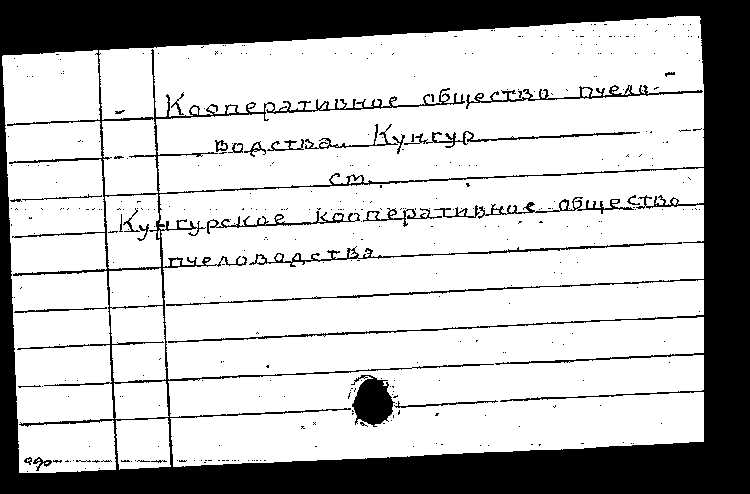 - Кооперативное общество пчело-
водства. Кунгур
см.
Кунгурское кооперативное общество
пчеловодства.